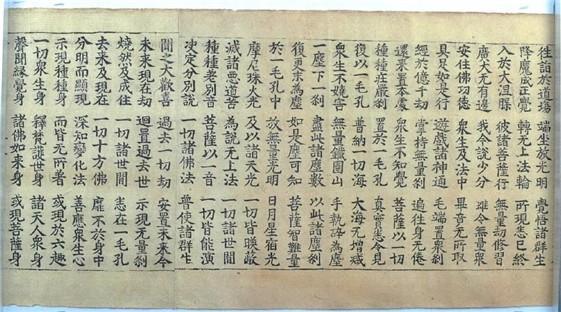 往詣於道場 端坐放光明 覺悟諸群生
降魔成正覺 轉無上法輪 所現悉已終
入於大涅槃 彼諸菩薩行 無量劫修習
廣大无有邊 我今說少分 難令無量眾
安住佛功德 眾生及法中 畢竟无所取
具足如是行 遊戲諸神通 毛端置眾剎
經於億千劫 掌持無量剎 遍往身无倦
還來置本處 眾生不知覺 菩薩以一切
種種莊嚴剎 置於一毛孔 真實悉令見
復以一毛孔 普納一切海 大海无增減
眾生不嬈害 無量鐵圍山 手執碎為塵
一塵下一剎 盡此諸塵數 以此諸塵剎
復更末為塵 如是塵可知 菩薩智難量
於一毛孔中 放無量光明 日月星宿光
摩尼珠火光 及以諸天光 一切皆暎蔽
滅諸惡道苦 為說无上法 一切諸世間
種種差別音 菩薩以一音 一切皆能演
決定分別說 一切諸佛法 普使諸群生
聞之大歡喜 過去一切劫 安置未來今
未來現在劫 迴置過去世 示現无量剎
燒然及成住 一切諸世間 悉在一毛孔
去來及現在 一切十方佛 靡不於身中
分明而顯現 深知變化法 善應眾生心
示現種種身 而皆无所著 或現於六趣
一切眾生身 釋梵護世身 諸天人眾身
聲聞緣覺身 諸佛如來身 或現菩薩身